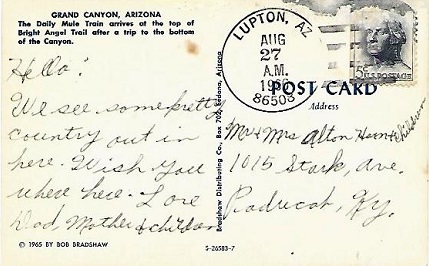 GRAND CANYON, ARIZONA
The Daily Mule Train arrives at the top of
Bright Angel Trail after a trip to the bottom
of the Canyon.
Hello!
We see some pretty
country out in
here. Wish you
where here. Love
Dad, Mother & children
© 1965 BY BOB BRADSHAW
S-26583-7
Bradshaw Distributing Co., Box 702, Sedona, Arizona
LUPTON, AZ
AUG
27
A.M.
86508
5c
U.S. POSTAGE
POST CARD
Address
Mr & Mrs Alton & Children
1015 Stark, Ave.
Paducah, Ky.